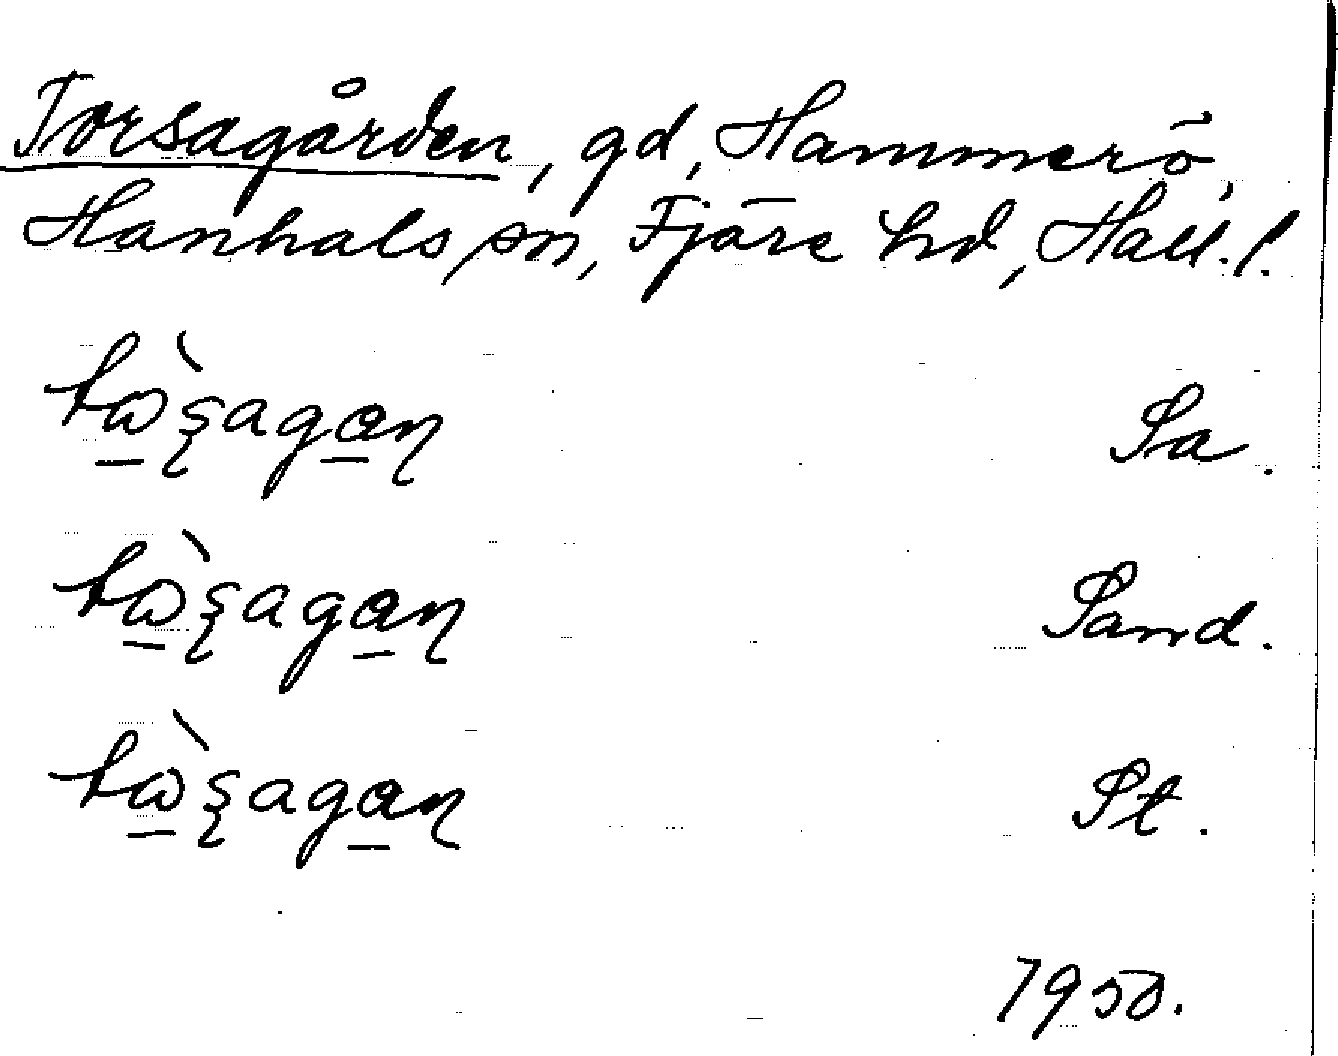 Torsagården, gd, Hammerö,
Hanhals sn, Fjäre hd, Hall. l.
tɷ̀ʂagaɳ Sa.
tɷ̀ʂagaɳ Sand.
tɷ̀ʂagaɳ St.
1950.